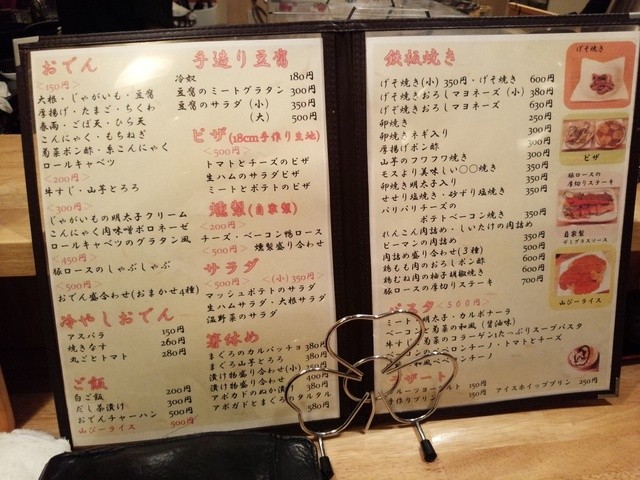 おでん
<150円>
大根・じゃがいも・豆腐
厚揚げ・たまご・ちくわ
春雨・ごぼ天・ひら天
こんにゃく・もちねぎ
菊菜ポン酢・糸こんにゃく
ロールキャベツ
<200円>
牛すじ・山芋とろろ
<300円>
じゃがいもの明太子クリーム
こんにゃく肉味噌ボロネーゼ
ロールキャベツのグラタン風
<450円>
豚ロースのしゃぶしゃぶ
<500円>
おでん盛合わせ(おまかせ4種)
冷やしおでん
アスパラ 150円
焼きなす 260円
丸ごとトマト 280円
ご飯
白ご飯 200円
だし茶漬け 300円
おでんチャーハン 500円
山ぴーライス 500円
手造り豆腐
冷奴 180円
豆腐のミートグラタン 300円
豆腐のサラダ (小) 350円
(大) 500円
ピザ(18cm手作り生地)
<500円>
トマトとチーズのピザ
生ハムのサラダピザ
ミートとポテトのピザ
燻製(自家製)
<200円>
チーズ・ベーコン鴨ロース
<500円> 燻製盛り合わせ
サラダ
<500円> <(小)350円>
マッシュポテトのサラダ
生ハムサラダ・大根サラダ
温野菜のサラダ
箸休め
まぐろのカルパッチョ 380円
まぐろ山芋とろろ 380円
漬け物盛り合わせ(小)
漬け物盛り合わせ 400円
アボカドのぬか漬け 380円
アボガドとまぐろのタルタル
580円
鉄板焼き
げそ焼き(小) 350円・げそ焼き 600円
げそ焼きおろしマヨネーズ(小) 380円
げそ焼きおろしマヨネーズ 630円
卵焼き 250円
卵焼きネギ入り 300円
厚揚げポン酢 350円
山芋のフワフワ焼き 350円
モスより美味しい〇〇焼き 350円
卵焼き明太子入り 350円
せせり塩焼き・砂ずり塩焼き 350円
パリパリチーズの
ポテトベーコン焼き 350円
れんこん肉詰め・しいたけの肉詰め
ピーマンの肉詰め 350円
肉詰め盛り合わせ(3種) 500円
鶏もも肉のおろしポン酢 600円
鶏むね肉の柚子胡椒焼き 600円
豚ロースの厚切りステーキ 700円
パスタ<500円>
ミート・明太子・カルボナーラ
ベーコンと菊菜の和風(醤油味)
牛すじと菊菜のコラーゲンたっぷりスープパスタ
ペペロンチーノ・トマトとチーズ
デザート
フルーツヨーグルト 150円
手作りプリン 150円
アイスホイッププリン 250円
げそ焼き
ピザ
豚ロースの
厚切りステーキ
自家製
デミグラスソース
山ぴーライス